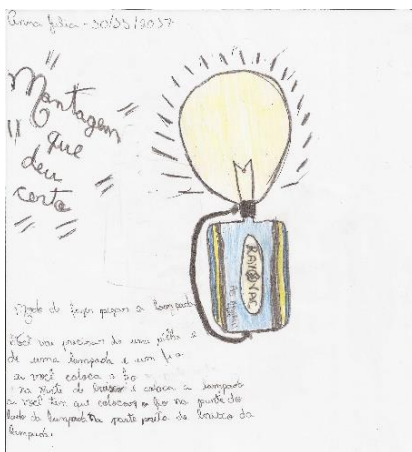 Anna Julia - 30/11/2017
Montagem
que
deu
certo
RAYOVAC
Modo de fazer pegar a lampada
Você vai precisar de uma pilha e
de uma lampada e um fio
ai você coloca o fio
na ponte de baixo e coloca a lampada
ai você tem que colocar o fio na ponte do
lado da lampada na parte preta de baixo da
lampada.